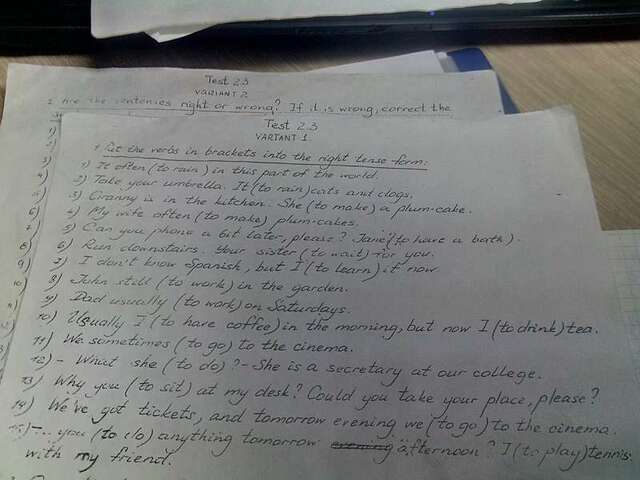 Test 2.3
VARIANT 2
1 Are the sentences right or wrong? If it is wrong, correct the
Test 2.3
VARIANT 1.
1 Put the verbs in brackets into the right tense form:
1) It often (to rain) in this part of the world.
2) Take your umbrella. It (to rain) cats and dogs.
3) Granny is in the kitchen. She (to make) a plum-cake.
4) My wife often (to make) plum-cakes.
5) Can you phone a bit later, please? Jane (to have a bath).
6) Run downstairs. Your sister (to wait) for you.
7) I don't know Spanish, but I (to learn) it now
8) John still (to work) in the garden.
9) Dad usually (to work) on Saturdays.
10) Usually I (to have coffee) in the morning, but now I (to drink) tea.
11) We sometimes (to go) to the cinema.
12) - What she (to do)? - She is a secretary at our college.
13) Why you (to sit) at my desk? Could you take your place, please?
14) We've got tickets, and tomorrow evening we (to go) to the cinema.
15) - ... you (to do) anything tomorrow evening afternoon? I (to play) tennis
with my friend.